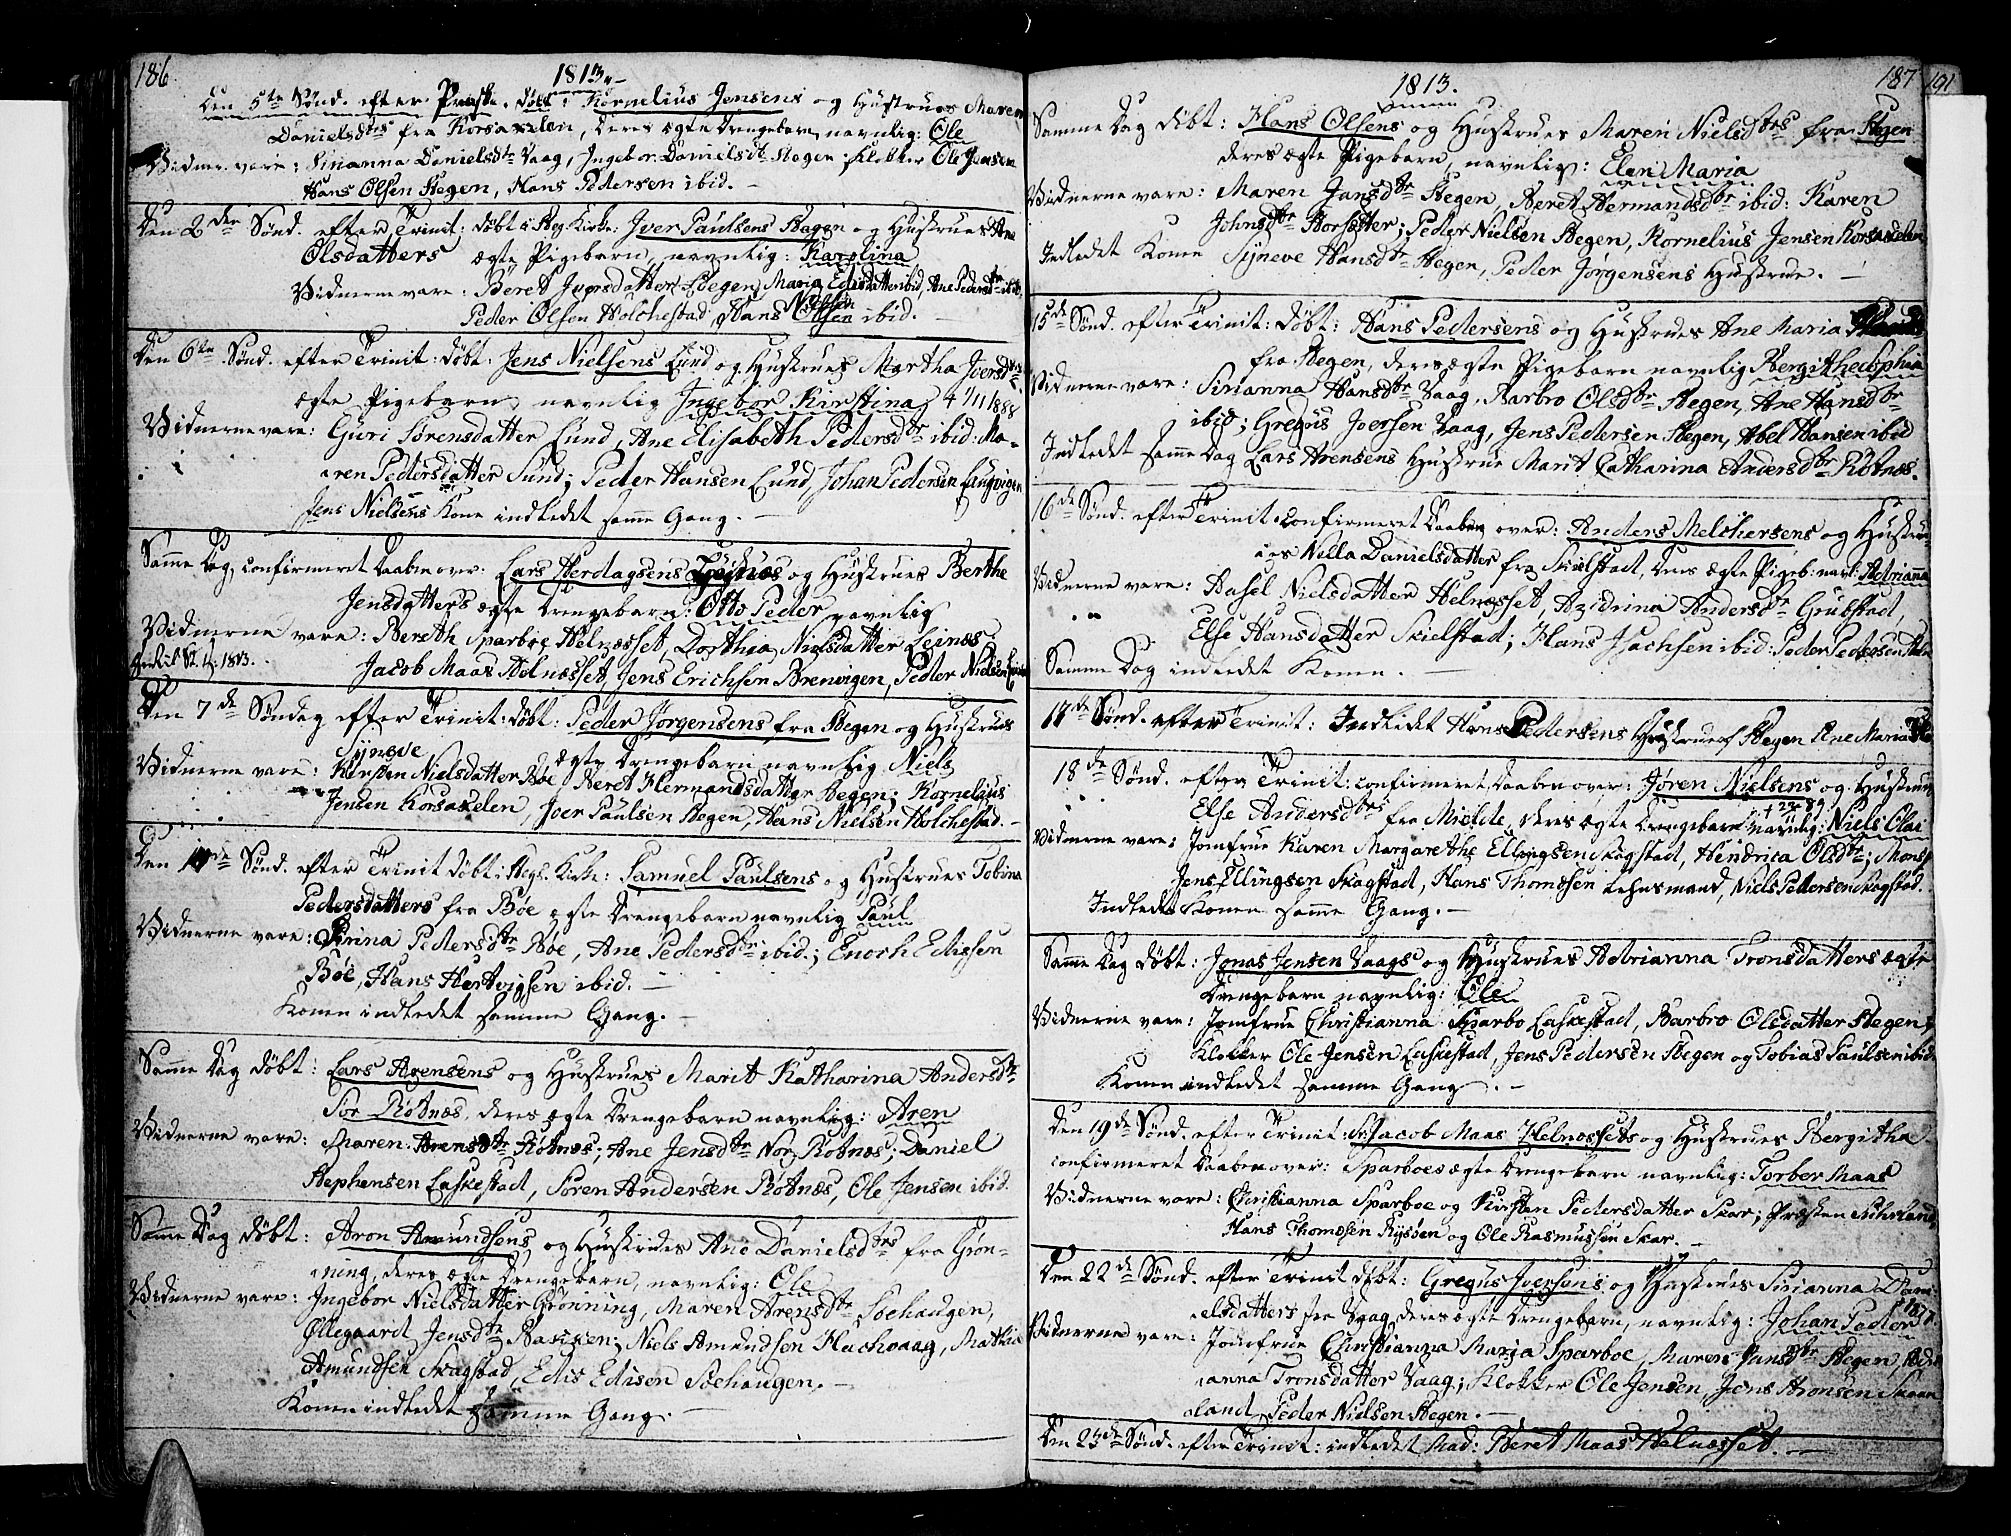 186
1813.
Den 5te Sønd. efter Paaske. døbt: Kornelius Jensens og Hustrues Maren
Danielsdtrs fra Korsaxelen, deres ægte Drengebarn, navnlig: Ole
Vidner. vare: Sirianna Danielsdtr Vaag, Ingebor Danielsdtr Stegen; Klokker Ole Jensen
Hans Olsen Stegen, Hans Pedersen ibid.
Den 2den Sønd. efter Trinit: døbt i Steg. Kirke: Iver Paulsens Stegen og Hustrues Ane
Olsdatters ægte Pigebarn, navnlig: Karolina
Vidnerne vare: Beret Iversdatter Stegen, Maria Edisdatter ibid, Ane Pedersdtr ibid,
Peder Olsen Holchestad, Hans Nielsen ibid.
Den 6te Sønd. efter Trinit: døbt: Jens Nielsens Lund og Hustrues Martha Iversdtrs
ægte Pigebarn, navnlig Ingebor Kirstina 4 1/11 1888
Vidnerne vare: Guri Sørensdatter Lund, Ane Elisabeth Pedersdtr ibid: Ma-
aren Pedersdatter Sund; Peder Hansen Lund, Johan Pedersen Laugvigen
Jens Nielsens Kone indledet samme Gang.
Samme Dag, confirmeret Daaben over: Lars Herdagsens og Hustrues Berthe
Jensdatters ægte Drengebarn: Otto Peder navnlig
Vidnerne vare: Bereth Sparboe Helnæsset, Dorthea Nielsdatter Leinæs;
Jacob Maas Helnæsset, Jens Erichsen Brenvigen, Peder Nielsen
Den 7de Søndag efter Trinit: døbt: Peder Jørgensens fra Stegen og Hustrues
Synneve ægte Drengebarn navnlig Niels
Vidnerne vare: Kirsten Nielsdatter Bøe, Beret Hermandsdatter Stegen; Kornelius
Jensen Korsaxelen, Iver Paulsen Stegen, Hans Nielsen Holchestad.
Den 11de Sønd. efter Trinit døbt i Stegs. Kirke: Samuel Paulsens og Hustrues Tobina
Pedersdatters fra Bøe ægte Drengebarn navnlig Paul
Vidnerne vare: Sirina Pedersdtr Bøe, Ane Pedersdtr ibid.; Enoch Edissen
Bøe, Hans Hertvigsen ibid.
Konen indledet samme Gang.
Samme Dag døbt: Lars Arensens og Hustrues Marit Katharina Andersdtr
Sør Røtnæs, deres ægte Drengebarn navnlig: Aren
Vidnerne vare: Maren Arensdtr Røtnæs; Ane Jensdtr Nor Røtnæs; Daniel
Stephensen Laskestad, Søren Andersen Røtnæs, Ole Jensen ibid.
Samme Dag døbt: Aron Amundsens og Hustrues Ane Danielsdtrs fra Grøn-
ning, deres ægte Drengebarn, navnlig: Ole
Vidnerne vare: Ingebor Nielsdatter Grønning, Maren Arensdtr Soehaugen,
Øllegaard Jensdtr; Niels Amundsen Flachvaag, Mathias
Amundsen Skagstad, Edis Edisen Soehaugen.
Konen indledet samme Gang.
1813.
187
191
Samme Dag døbt: Hans Olsens og Hustrues Maren Nielsdtrs fra Stegen
deres ægte Pigebarn, navnlig: Elen Maria
Vidnerne vare: Maren Jansdtr Stegen, Beret Hermandsdtr ibid: Karen
Johnsdtr Horsetter; Peder Nielsen Stegen, Kornelius Jensen Korsaxelen
Indledet Konen Syneve Hansdtr Stegen, Peder Jørgensens Hustrue.
15de Sønd. efter Trinit: døbt: Hans Pedersens og Hustrues Ane Maria
fra Stegen, deres ægte Pigebarn navnlig Bergithe Sophia
Vidnerne vare: Sirianna Hansdtr Vaag, Barbro Olsdtr Stegen, Ane Hansdtr
ibid; Gregus Iversen Vaag, Jens Pedersen Stegen, Abel Hansen ibid
Indledet samme Dag Lars Arensens Hustrue Marit Catharina Andersdtr Røtnæs.
16de Sønd. efter Trinit: confirmeret Daaben over: Anders Melchersens og Hustru-
es Nella Danielsdatter fra Skielstad, deres ægte Pigeb: navl: Adrianna
Vidnerne vare: Hasel Nielsdatter Helnæsset, Azidrina Andersdtr Grubstad,
Else Hansdatter Skielstad; Hans Isachsen ibid: Peder Pedersen
Samme Dag indledet Konen.
17de Sønd. efter Trinit: Indledet Hans Pedersens Hustrue af Stegen Ane Maria
18de Sønd. efter Trinit: confirmeret Daaben over: Jøren Nielsens og Hustrues
Else Andersdtrs fra Mielde, deres ægte Drengebarn navnlig: Niels Olai
Vidnerne vare: Jomfrue Karen Margarethe Ellingsen Skagstad, Hendrica Olsdtr;
Jens Ellingsen Skagstad, Hans Thomæsen Lehnsmand, Niels Pedersen Skagstad.
Indledet Konen samme Gang.
Samme Dag døbt: Jonas Jensen Vaags og Hustrues Adrianna Tronsdatters ægte
Drengebarn navnlig: Ole
Vidnerne vare: Jomfrue Christianna Sparbo Laskestad, Barbro Olsdatter Stegen;
Klokker Ole Jensen Laskestad, Jens Pedersen Stegen og Tobias Paulsen ibid.
Konen indledet samme Gang.
Den 19de Sønd. efter Trinit: Sr. Jacob Maas Helnæssets og Hustrues Bergitha
confirmeret Daaben over: Sparboes ægte Drengebarn navnlig: Torber Maas
Vidnerne vare: Christianna Sparboe og Kirsten Pedersdatter Skar; Præsten
Hans Thomæsen Rysøen og Ole Rasmussen Skar.
Den 22de Sønd. efter Trinit døbt: Gregus Iversens og Hustrues Sirianna Dani-
elsdatters fra Vaag, deres ægte Drengebarn, navnlig: Johan Peder
Vidnerne vare: Jomfrue Christianna Maria Sparboe, Maren Jansdtr Stegen, Adri-
anna Tronsdatter Vaag; Klokker Ole Jensen, Jens Aronsen
land, Peder Nielsen Stegen.
Den 23de Sønd. efter Trinit: indledet Mad: Beret Maas Helnæsset.